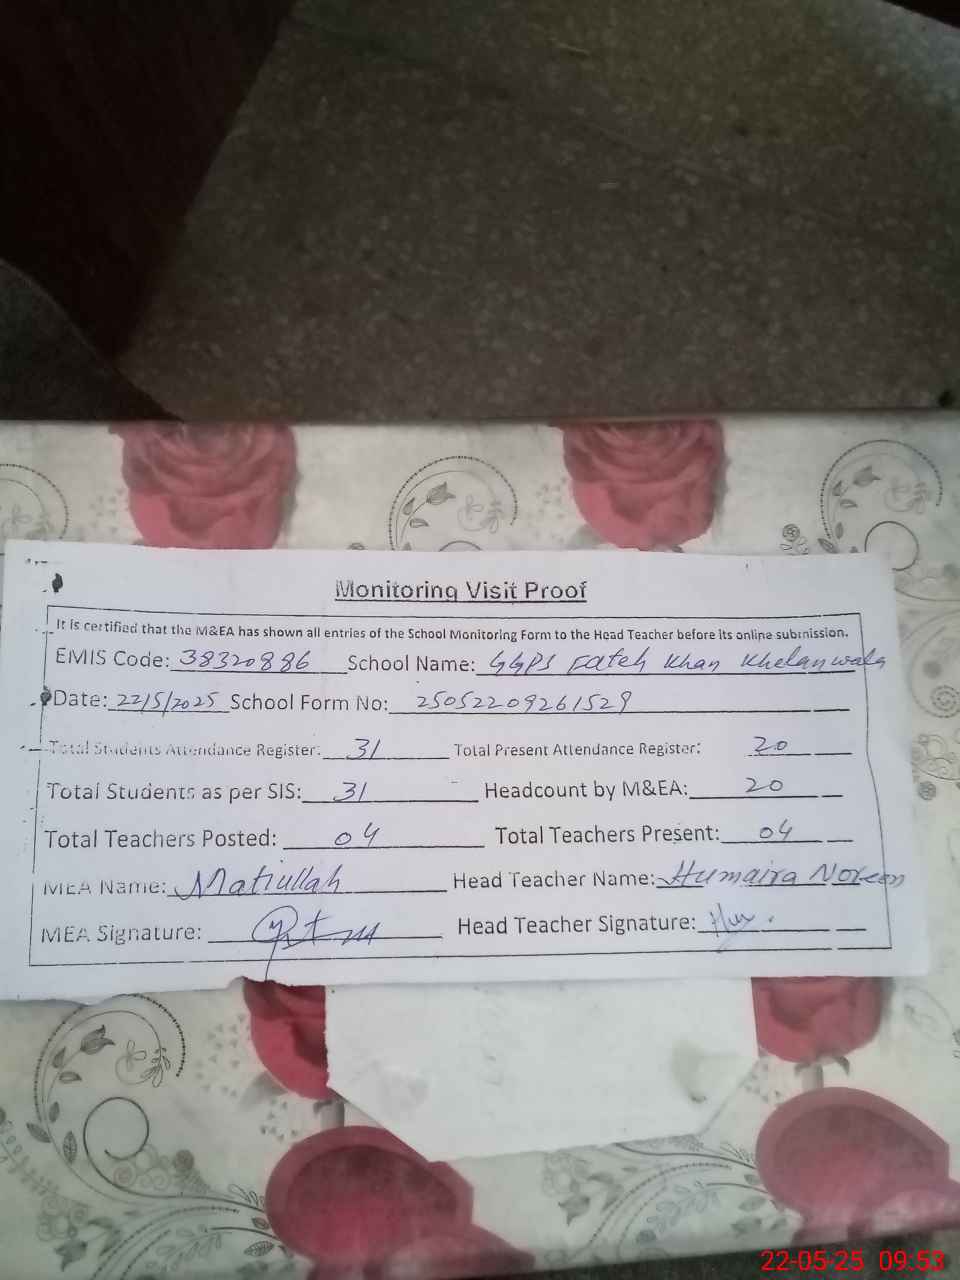 Monitoring Visit Proof
It is certified that the M&EA has shown all entries of the School Monitoring Form to the Head Teacher before its online submission.
EMIS Code: 38320886 School Name: GGPS Fateh Khan Khelanwala
Date: 22/5/2025 School Form No: 25052209261529
Total Students Attendance Register: 31 Total Present Attendance Register: 20
Total Students as per SIS: 31 Headcount by M&EA: 20
Total Teachers Posted: 04 Total Teachers Present: 04
MEA Name: Matiullah Head Teacher Name: Humaira Noreen
MEA Signature: Head Teacher Signature:
22-05-25 09:53